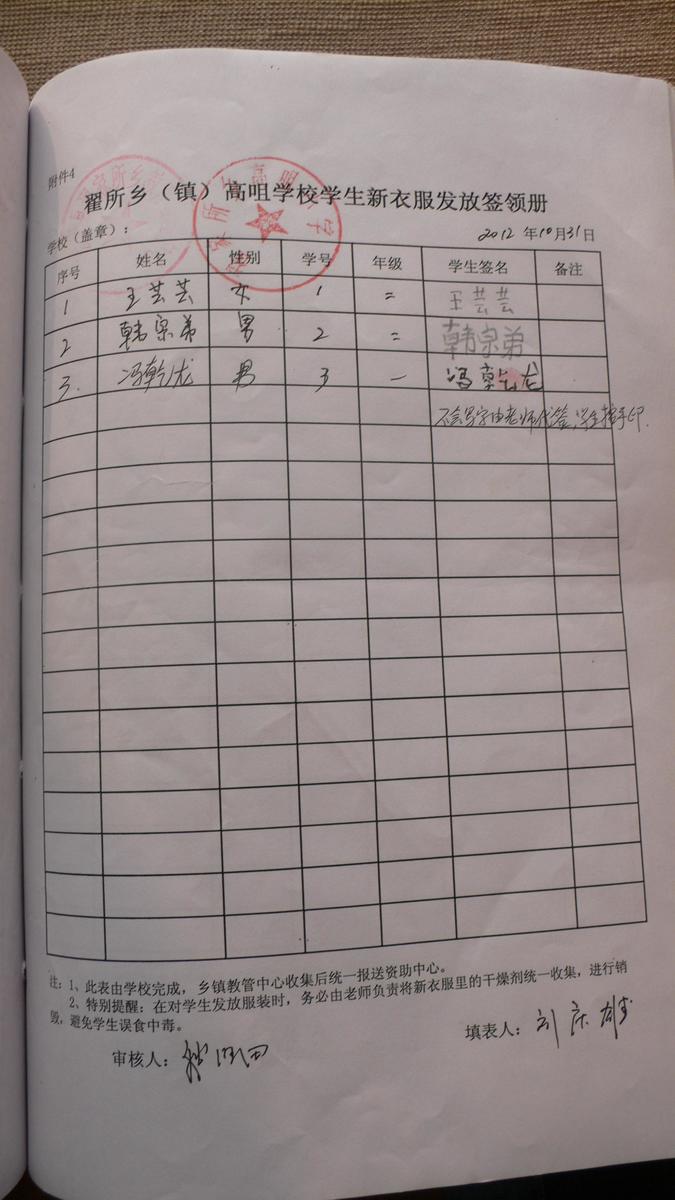 附件4
翟所乡（镇）高咀学校学生新衣服发放签领册
学校（盖章）： 2012 年 10月 31日
序号 姓名 性别 学号 年级 学生签名 备注
1 王芸芸 女 1 二 王芸芸
2 韩宗弟 男 2 二 韩宗弟
3. 冯乾龙 男 3 一 冯乾龙
不会写字由老师代签,学生按手印.
注：1、此表由学校完成，乡镇教管中心收集后统一报送资助中心。
2、特别提醒：在对学生发放服装时，务必由老师负责将新衣服里的干燥剂统一收集，进行销
毁，避免学生误食中毒。
审核人： 填表人：刘庆雄